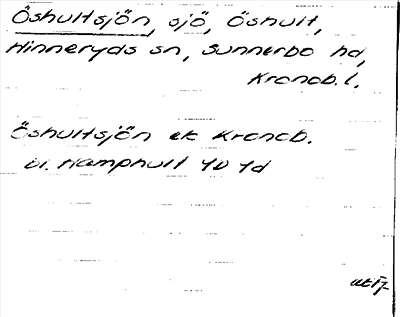 Öshultsjön, sjö, Öshult,
Hinneryds sn, Sunnerbo hd,
Kronob. l.
Öshultsjön ek Kronob.
bl. Hamphult 4D 4d